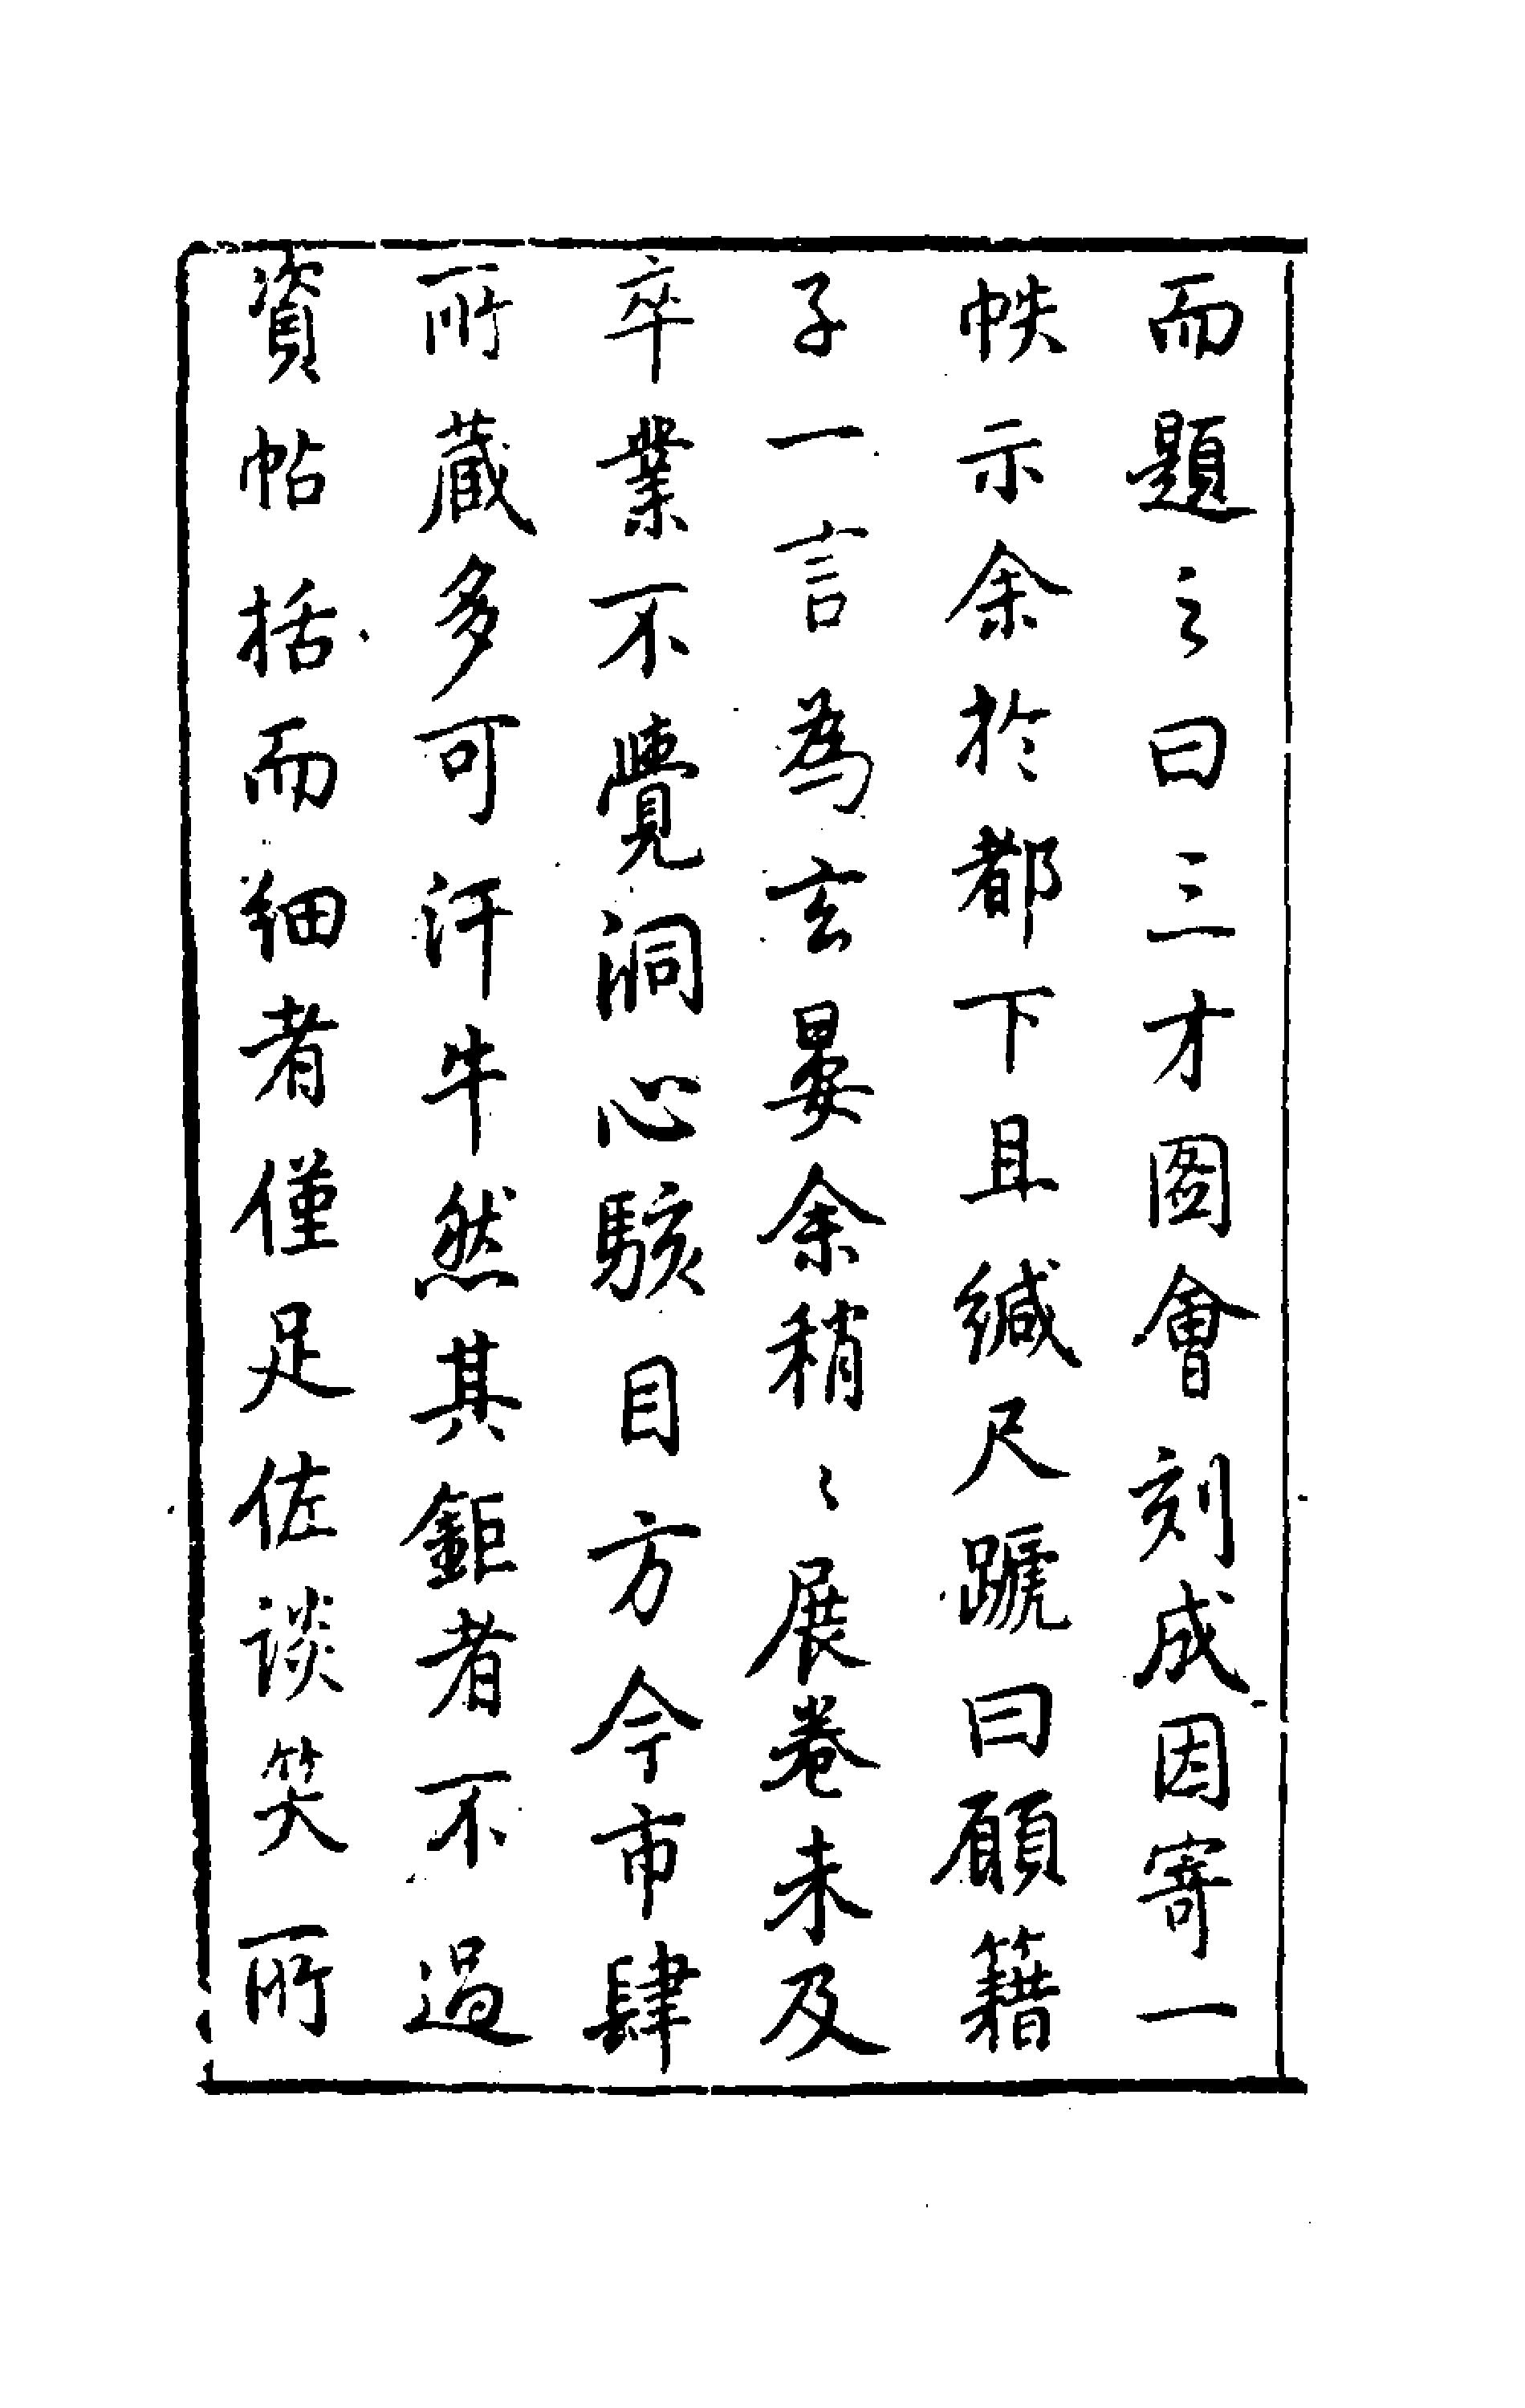 而題之曰三才圖會刻成因寄一
帙示余於都下且緘尺蹏曰願籍
子一言為玄晏余稍〻展卷未及
卒業不覺洞心駭目方今市肆
所藏多可汗牛然其鉅者不過
資帖括而細者僅足佐談笑所